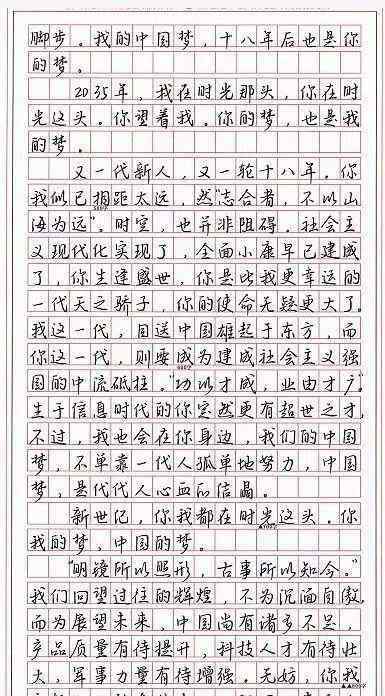 脚步。我的中国梦，十八年后也是你
的梦。
2035年，我在时光那头，你在时
光这头。你望着我。你的梦，也是我
的梦。
又一代新人，又一轮十八年。你
我似已相距太远，然“志合者，不以山
海为远”。时空，也并非阻碍。社会主
义现代化实现了，全面小康早已建成
了，你生逢盛世，你是比我更幸运的
一代天之骄子，你的使命无疑更大了。
我这一代，目送中国雄起于东方，而
你这一代，则要成为建成社会主义强
国的中流砥柱。“功以才成，业由才广”。
生于信息时代的你定然更有超世之才，
不过，我也会在你身边，我们的中国
梦，不单靠一代人孤单地努力，中国
梦，是代代人心血的结晶。
新世纪，你我都在时光这头。你
我的梦，中国的梦。
“明镜所以照形，古事所以知今。”
我们回望过往的辉煌，不为沉湎自傲，
而为展望未来，中国尚有诸多不足，
产品质量有待提升，科技人才有待壮
大，军事力量有待增强。无妨，你我